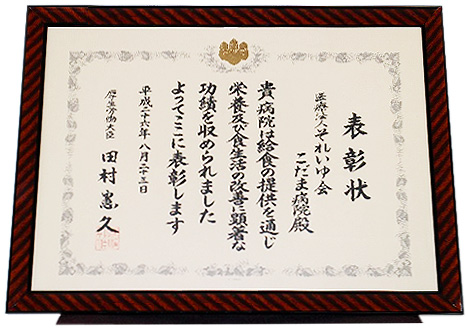 表彰状
医療法人それいゆ会
こだま病院殿
貴病院は給食の提供を通じ
栄養及び食生活の改善に顕著な
功績を収められました
よってここに表彰します
平成二十六年八月二十二日
厚生労働大臣
田村憲久